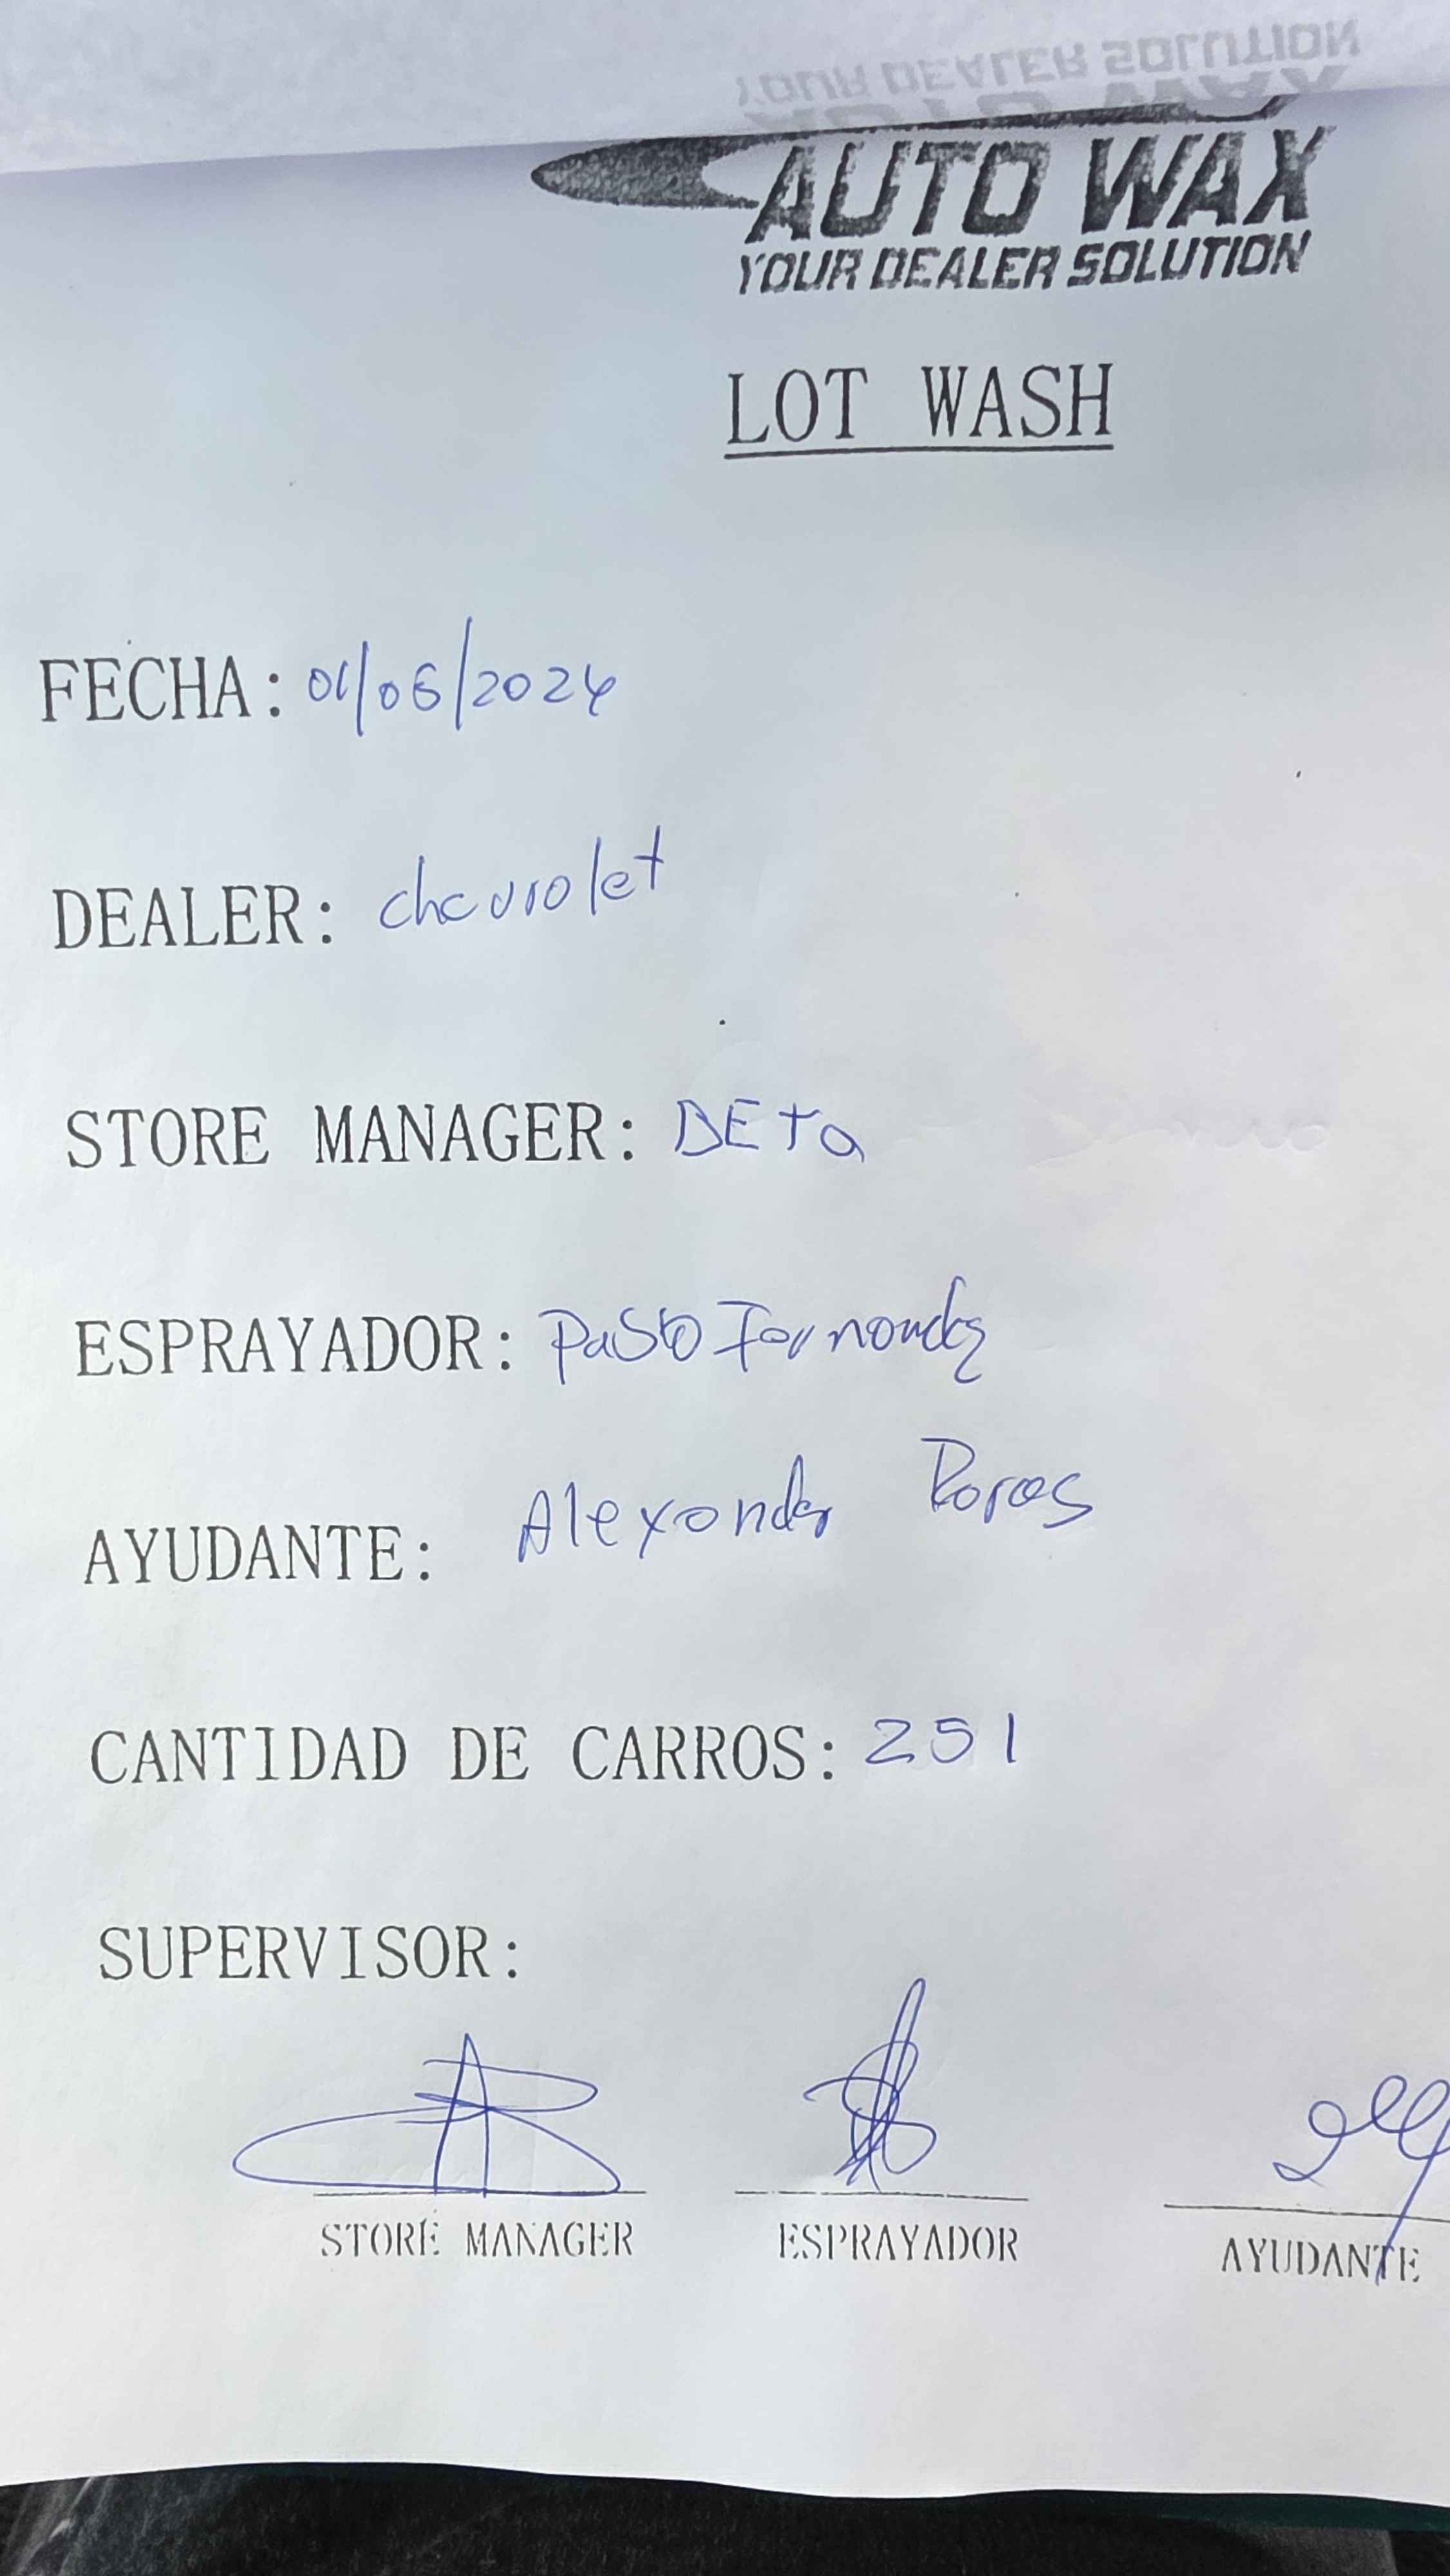 YOUR DEALER SOLUTION
AUTO WAX
AUTO WAX
YOUR DEALER SOLUTION
LOT WASH
FECHA: 01/06/2024
DEALER: chevrolet
STORE MANAGER: BETO
ESPRAYADOR:
AYUDANTE: Alexander
CANTIDAD DE CARROS: 251
SUPERVISOR:
STORE MANAGER ESPRAYADOR AYUDANTE